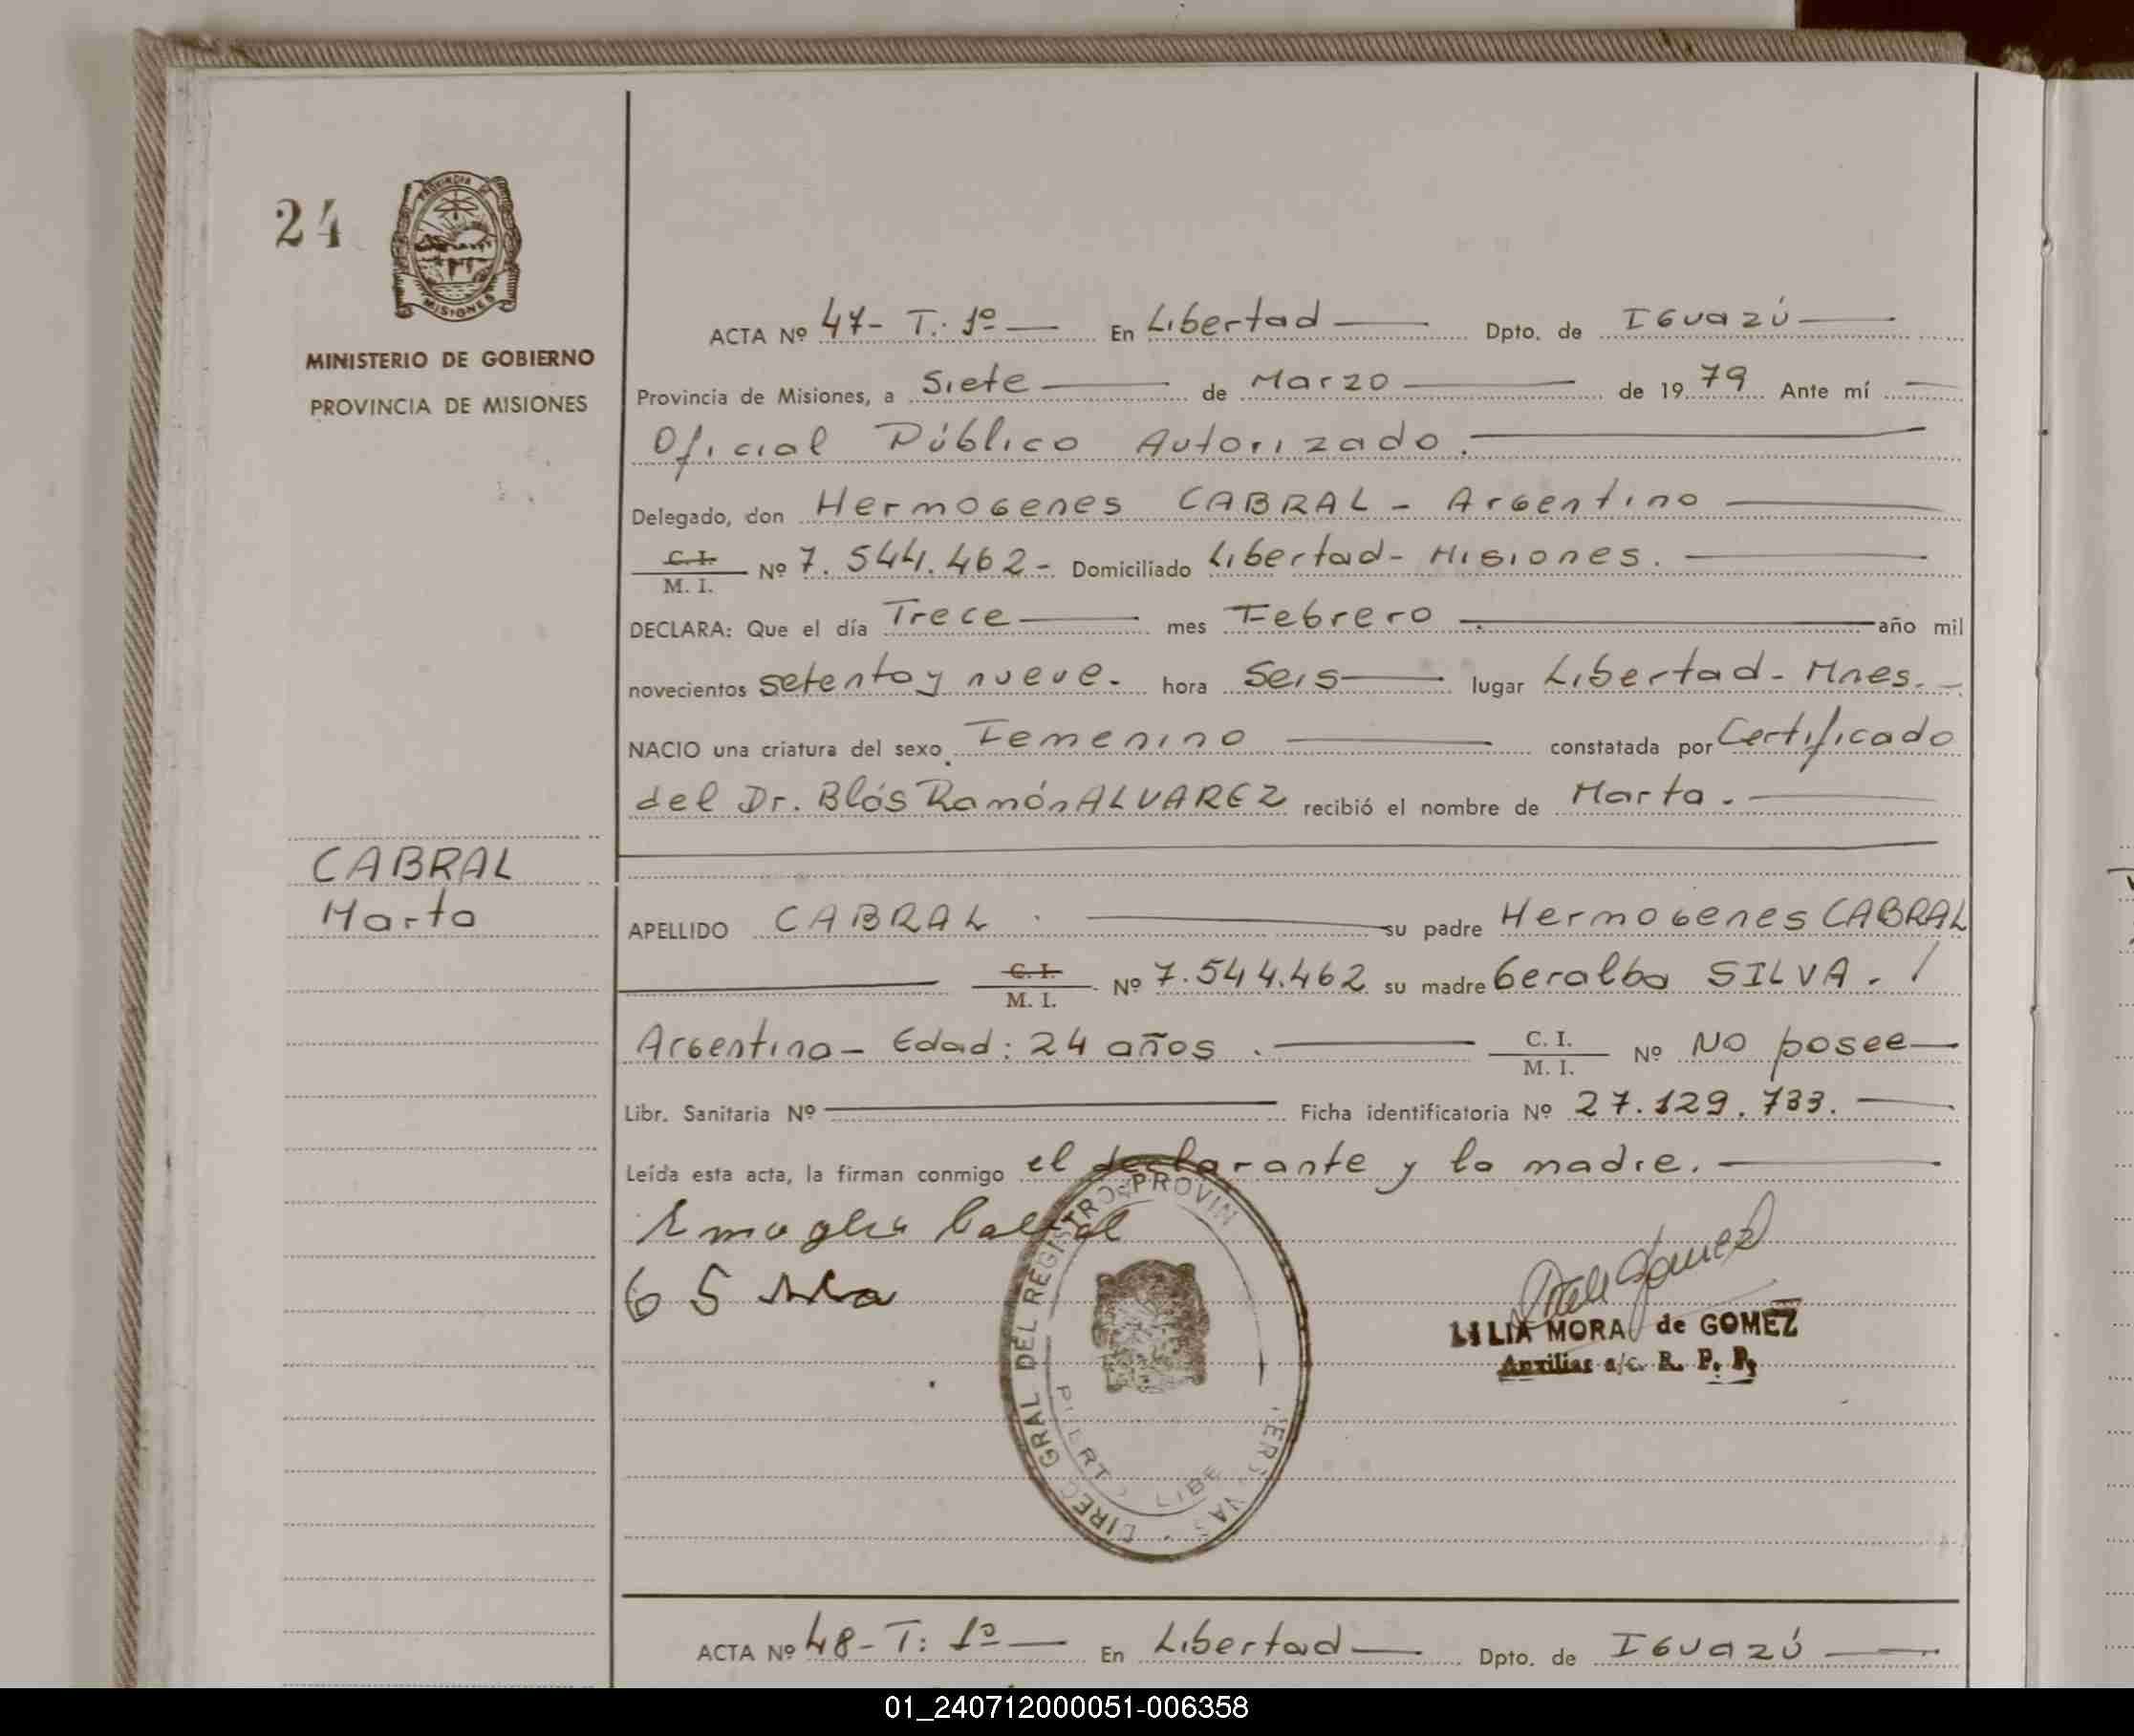 24
PROVINCIA DE
MISIONES
MINISTERIO DE GOBIERNO
PROVINCIA DE MISIONES
CABRAL
Marta
ACTA Nº 47- T.: 1º — En Libertad — Dpto. de IGUAZÚ —
Provincia de Misiones, a Siete — de Marzo — de 1979 Ante mí —
Oficial Público Autorizado. —
Delegado, don Hermogenes CABRAL - Argentino —
C. I. / M. I. Nº 7.544.462 - Domiciliado Libertad - Misiones. —
DECLARA: Que el día Trece — mes Febrero. — año mil
novecientos setenta y nueve. hora Seis — lugar Libertad - Mnes. -
NACIO una criatura del sexo Femenino — constatada por Certificado
del Dr. Blás Ramón ALVAREZ recibió el nombre de Marta. —
APELLIDO CABRAL. — su padre Hermogenes CABRAL
— C. I. / M. I. Nº 7.544.462 su madre Geralba SILVA. /
Argentina - Edad: 24 años. — C. I. / M. I. Nº No posee —
Libr. Sanitaria Nº — Ficha identificatoria Nº 27.129.733. —
Leída esta acta, la firman conmigo el declarante y la madre. —
LILIA MORA de GOMEZ
Auxiliar a/c. R. P. P.
DIREC GRAL DEL REGISTRO PROVIN
ACTA Nº 48- T: 1º — En Libertad — Dpto. de IGUAZÚ —
01_240712000051-006358